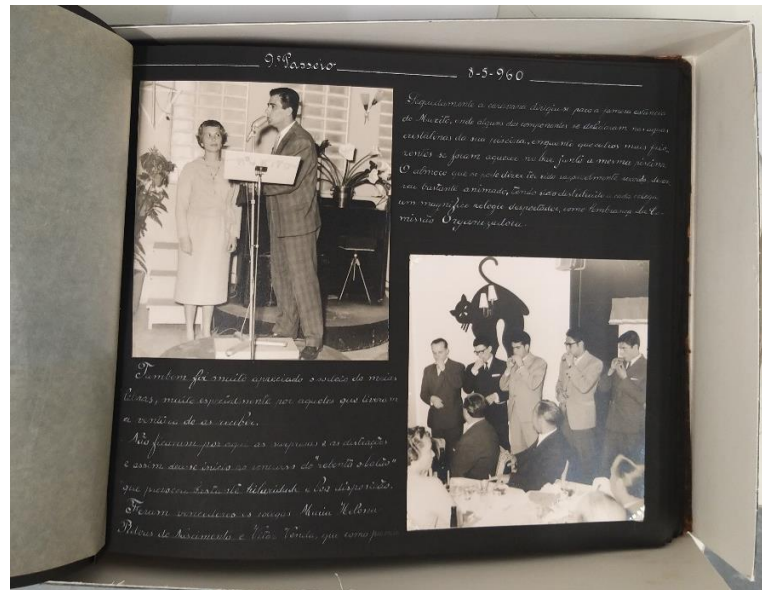 9º Passeio 8-5-960
Seguidamente a caravana dirigiu-se para a famosa estância
do Muxito, onde alguns dos componentes se deliciaram nas águas
cristalinas da sua piscina, enquanto que outros mais frio
rentos se foram aquecer no bar junto à mesma piscina.
O almoço que se pode dizer ter sido esquisitamente servido, decor
reu bastante animado, tendo sido distribuido a cada colega
um magnifico relogio despertador, como lembrança da Co
missão Organizadora.
Tambem foi muito apreciado o sorteio de
muito especialmente por aqueles que tiveram
a ventura de as receber.
Não ficaram por aqui as surprezas e as distrações
e assim deu-se inicio ao concurso do "rebenta o balão"
que provocou bastante hilariedade e boa disposição.
Foram vencedores os colegas Maria Helena
de Nascimento, e Vitor Venda, que como